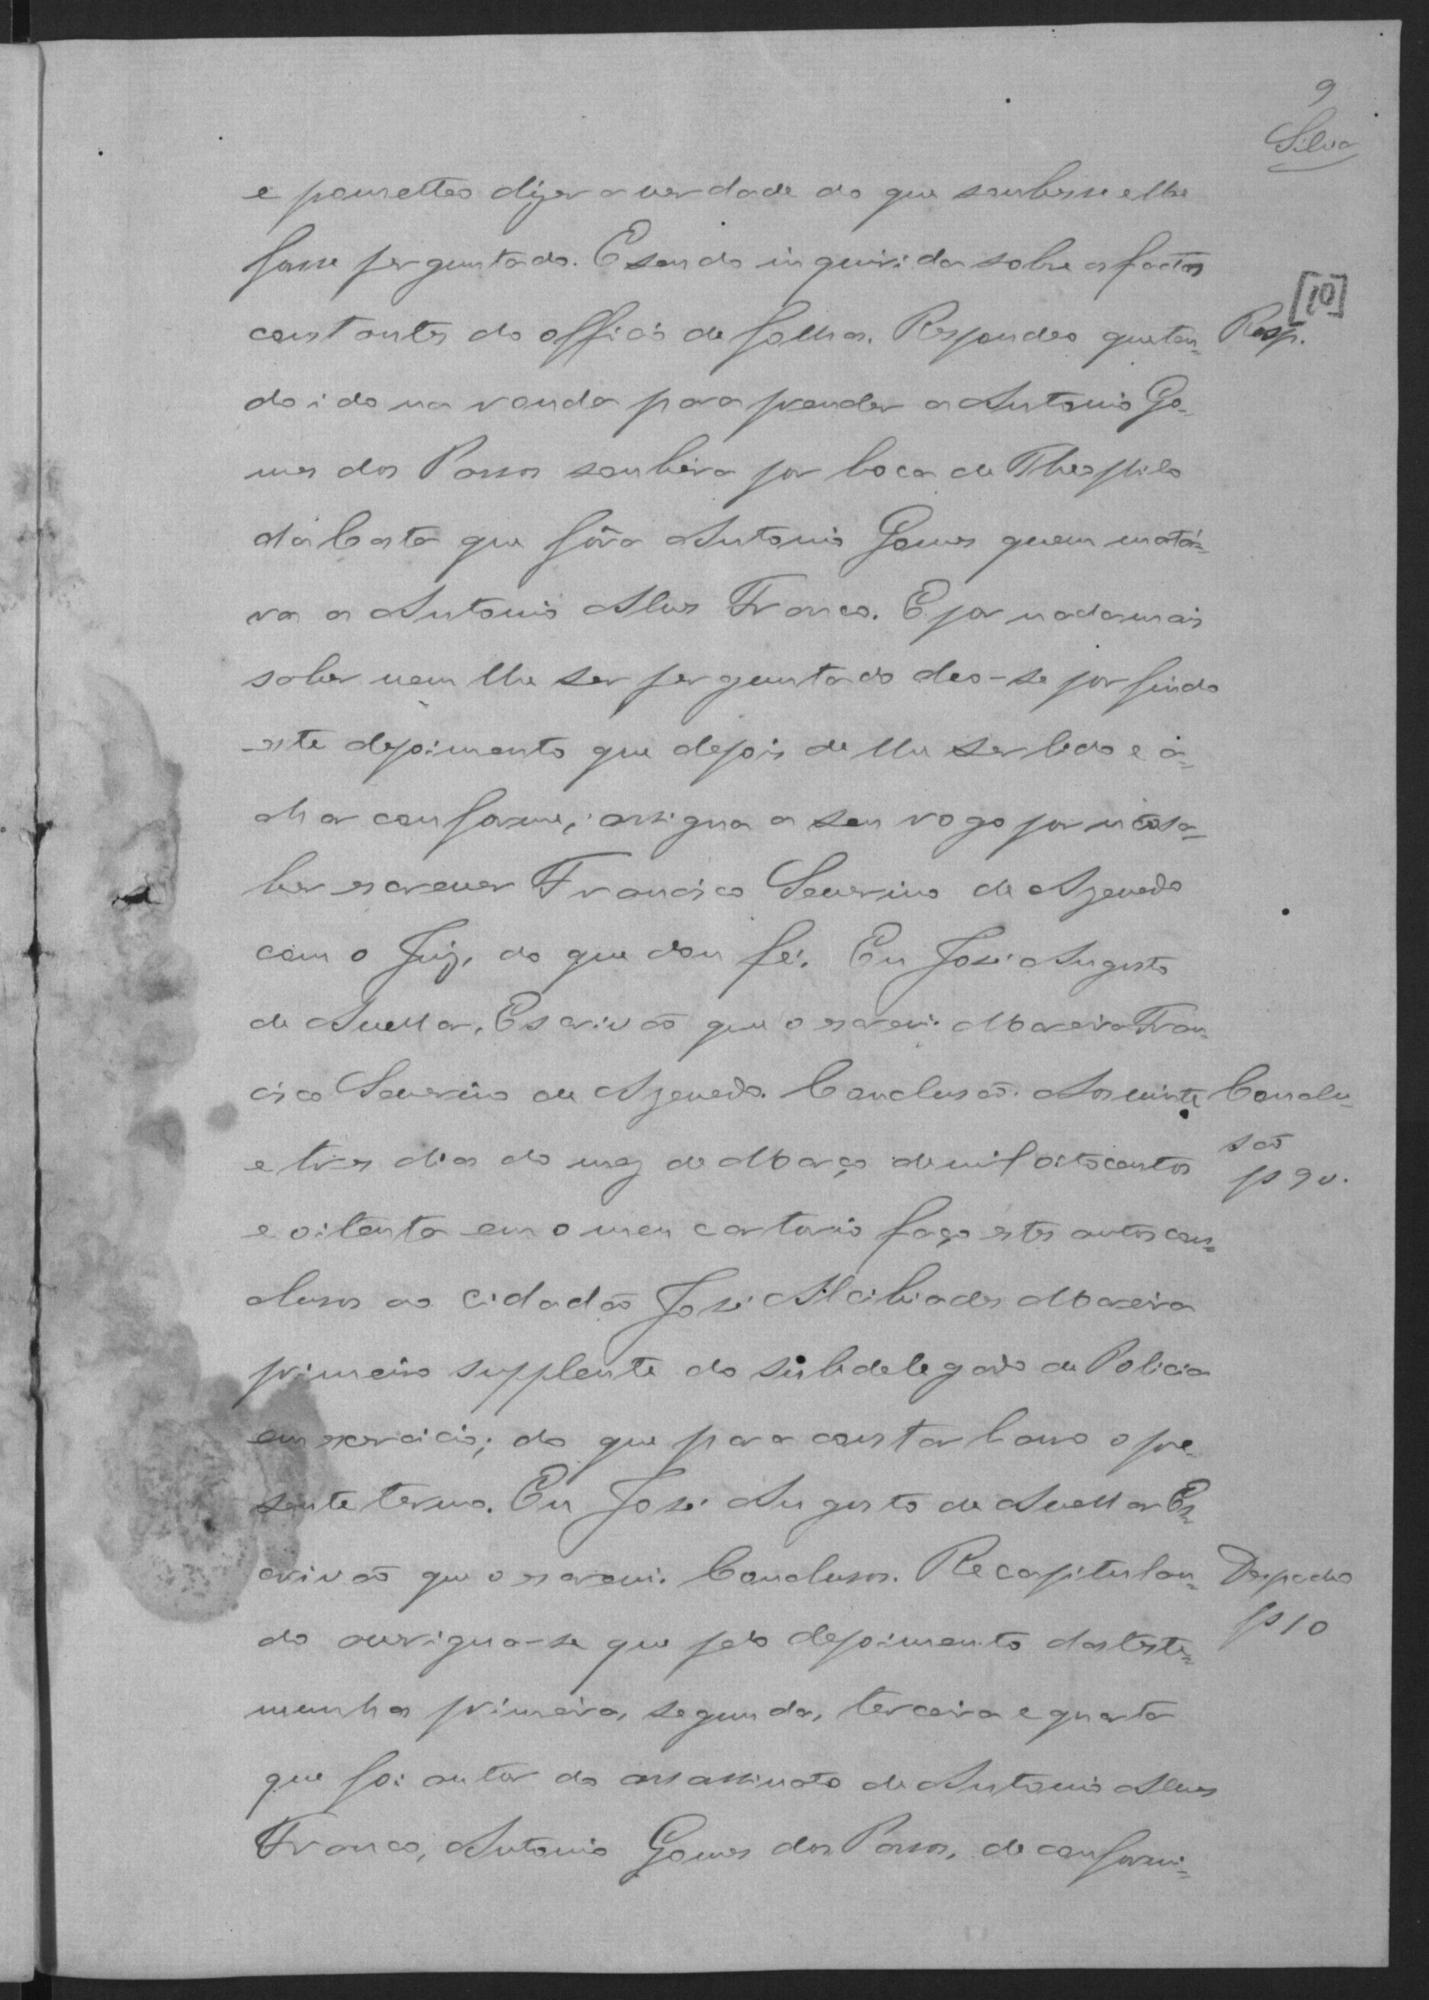 9
Silva
e prometteo dizer a verdade do que soubesse e lhe
fosse perguntado. E sendo inquirida sobre os factos
[10]
constantes do officio de folhas. Respondeo que ten- Resp.
do ido na venda para prender a Antonio Go-
mes dos Passos soubera por boca de Theophilo
da Costa que fôra Antonio Gomes quem matá-
ra a Antonio Alves Franco. E por nada mais
saber nem lhe ser perguntado deo-se por findo
este depoimento que depois de lhe ser lido e a-
char conforme, assigna a seu rogo por não sa-
ber escrever Francisco Severino de Azevedo
com o Juiz, do que dou fé. Eu José Augusto
de Avellar, Escrivão que o escrevi. Moreira Fran-
cisco Severino de Azevedo. Conclusão. Aos vinte Conclu-
são
e tres dias do mez de Março de mil oitocentos
p 9 v.
e oitenta em o meu cartorio faço estes autos con-
clusos ao cidadão José Alcibiades Moreira
primeiro supplente do subdelegado de Policia
em exercicio; do que para constar lavro o pre-
sente termo. Eu José Augusto de Avellar Es-
crivão que o escrevi. Conclusos. Recapitulan- Despacho
do averigua-se que pelo depoimento das teste- p 10
munhas primeira, segunda, terceira e quarta
que foi autor do assassinato de Antonio Alves
Franco, Antonio Gomes dos Passos, de conformi-